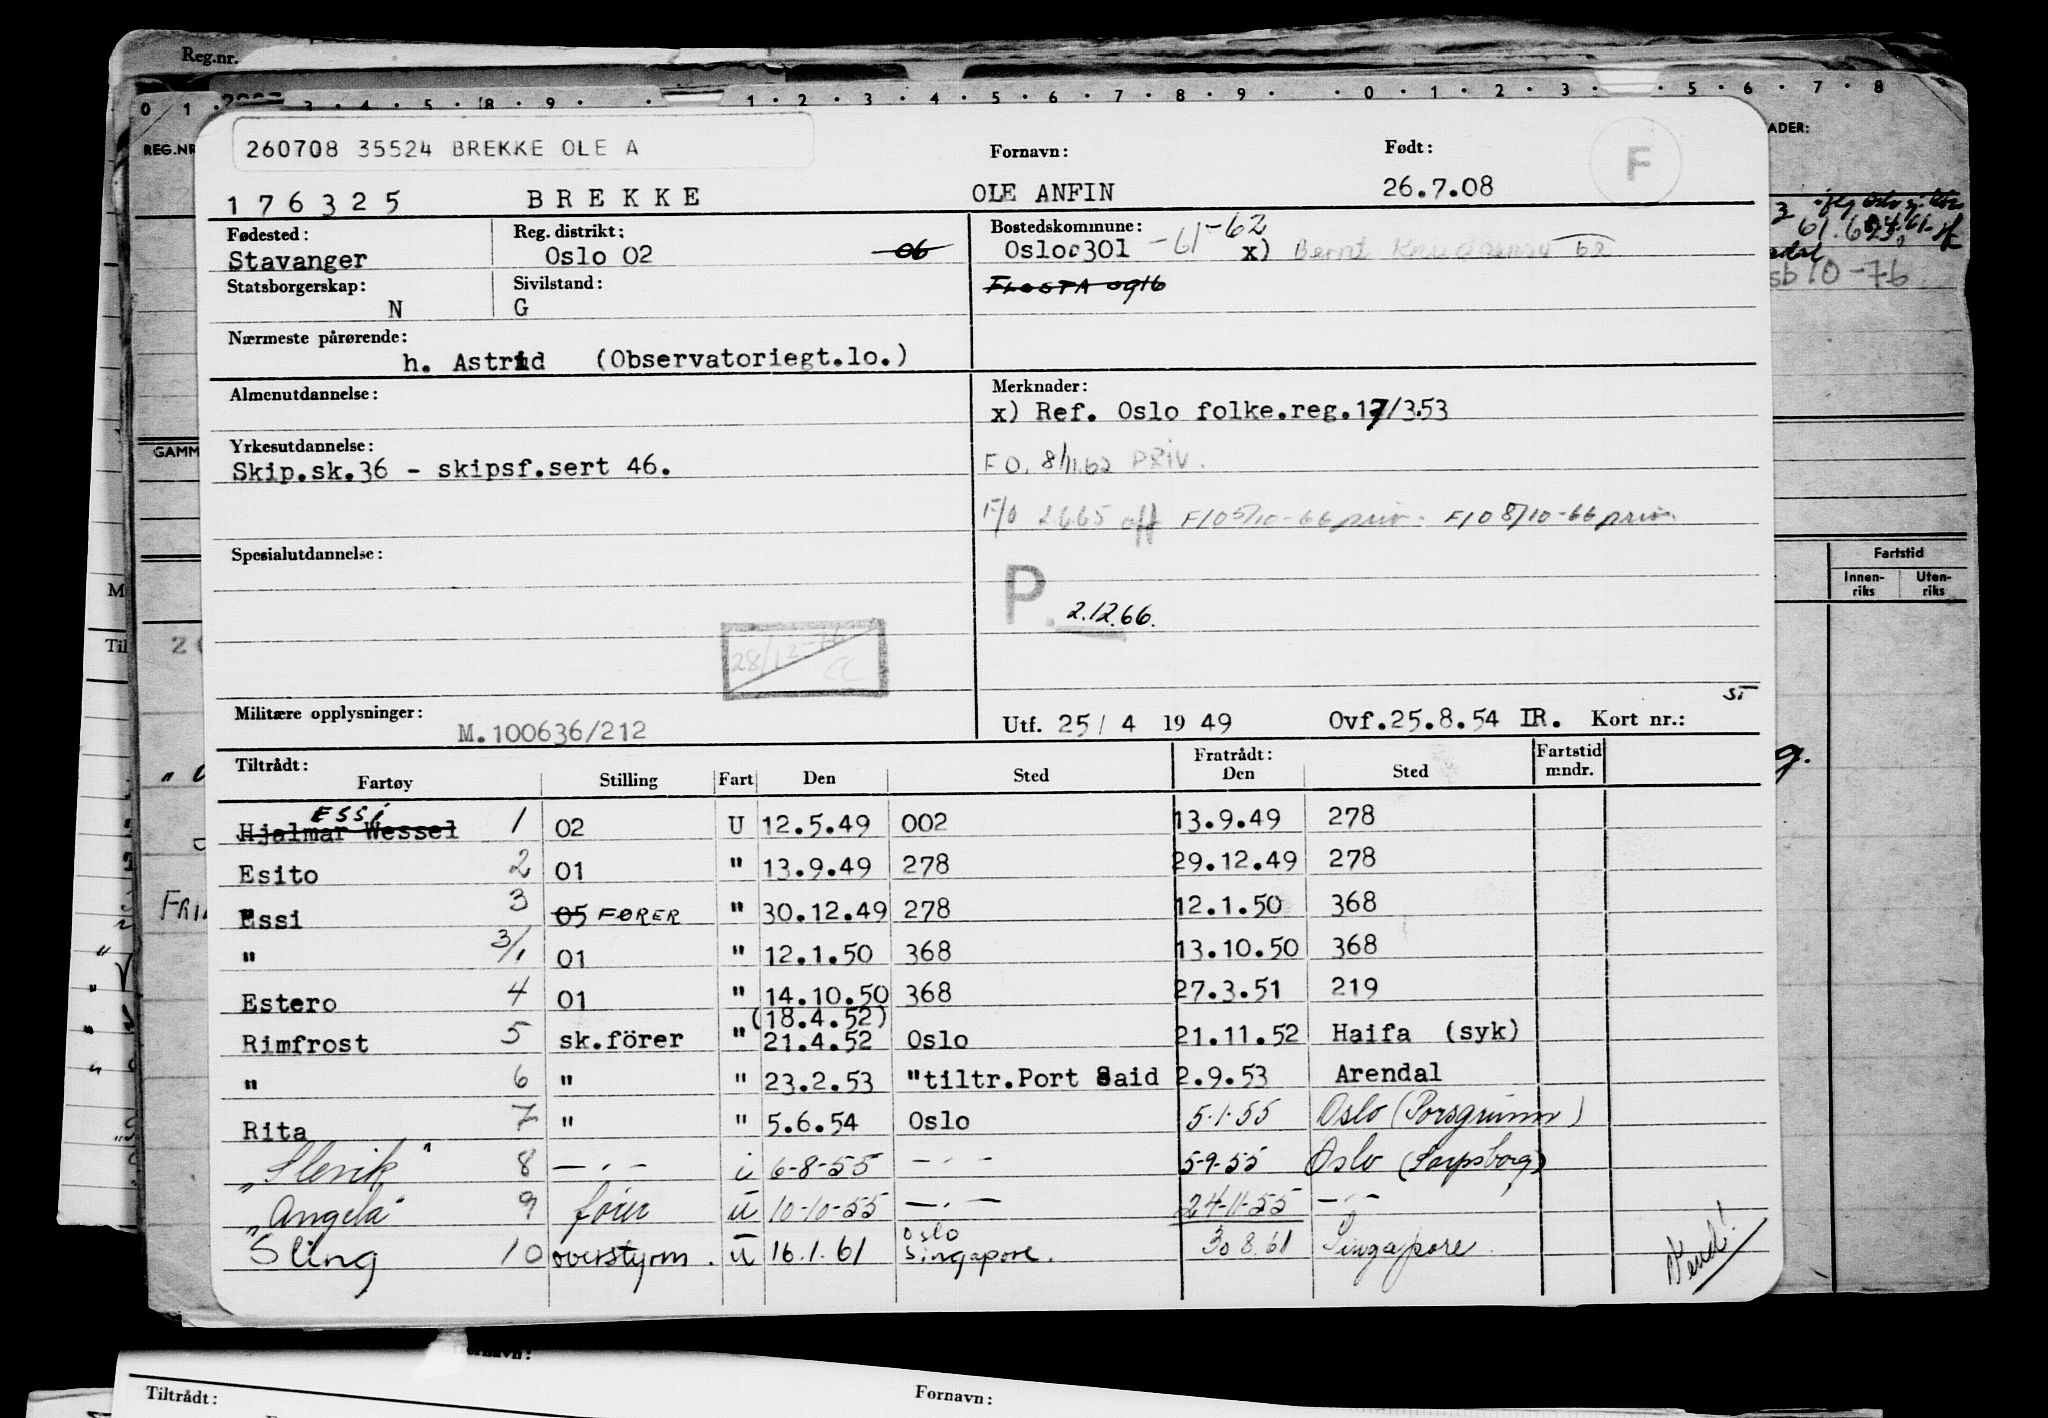 Reg.nr.
0 1 3 · 4 · 5 · 8 · 9 · 1 · 2 · 3 · 4 · 5 · 6 · 7 · 8 · 9 · 0 · 1 · 2 · 3 · 5 · 6 · 7 · 8
REG.NR
ADER:
260708 35524 BREKKE OLE A
Fornavn:
Født:
F
176325 BREKKE OLE ANFIN 26.7.08
Fødested: Reg. distrikt: Bostedskommune:
Stavanger Oslo 02 06 Oslo 0301 -61-62 x) Bernt 62
Statsborgerskap: Sivilstand: FLOSTA 0916
N G
sb 10-76
Nærmeste pårørende:
h. Astrid (Observatoriegt.lo.)
Almenutdannelse: Merknader:
x) Ref. Oslo folke.reg.17/3.53
Yrkesutdannelse:
GAMM
Skip.sk.36 - skipsf.sert 46. F O. 8/11.62 PRIV.
F/O 2665 off F/O 5/10-66 priv. F/O 8/10-66 priv.
Spesialutdannelse:
Fartstid
Innen-
riks
Uten-
riks
P. 2.12.66.
28/12-76
CC
Til
ST
Militære opplysninger: M.100636/212
Utf. 25/4 1949 Ovf.25.8.54 IR. Kort nr.:
Tiltrådt: Fratrådt: Fartstid
Fartøy Stilling Fart Den Sted Den Sted mndr.
ESSi
Hjalmar Wessel 1 02 U 12.5.49 002 13.9.49 278
Esito 2 01 " 13.9.49 278 29.12.49 278
Essi 3 05 FØRER " 30.12.49 278 12.1.50 368
" 3/1 01 " 12.1.50 368 13.10.50 368
Estero 4 01 " 14.10.50 368 27.3.51 219
(18.4.52)
Rimfrost 5 sk.förer " 21.4.52 Oslo 21.11.52 Haifa (syk)
" 6 " " 23.2.53 "tiltr.Port Said 2.9.53 Arendal
Rita 7 " " 5.6.54 Oslo 5.1.55 Oslo (Porsgrunn)
"Slevik" 8 —"— i 6-8-55 —"— 5-9-55 Oslo (Sarpsborg)
"Angela" 9 fører u 10-10-55 —"— 24-11-55 —"—
Sling 10 overstyrm. u 16.1.61 Oslo Singapore. 30 8.61 Singapore
Vend!
Fornavn:
Tiltrådt: